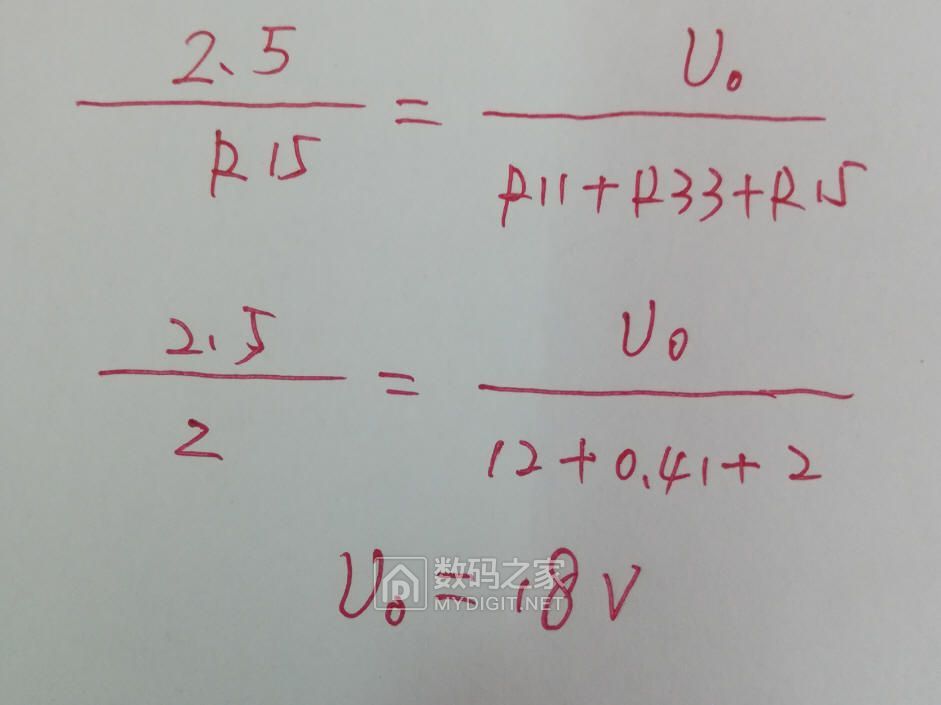 2.5 / R15 = U₀ / R11+R33+R15
2.5 / 2 = U₀ / 12+0.41+2
U₀ = 18V
数码之家
MYDIGIT.NET